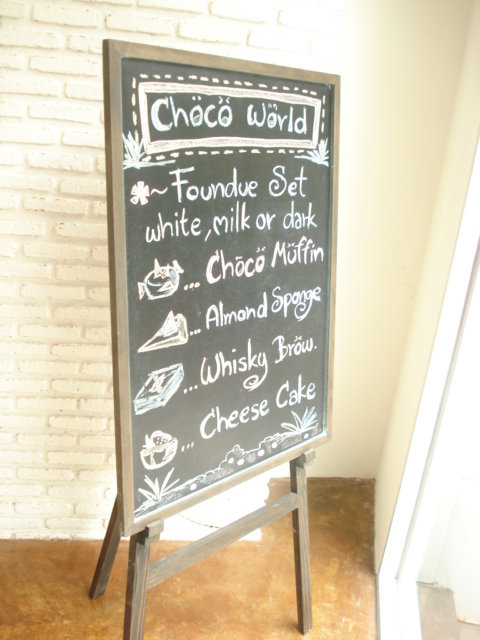 Choco World
~ Foundue Set
white, milk or dark
... Choco Muffin
... Almond Sponge
... Whisky Brow.
... Cheese Cake